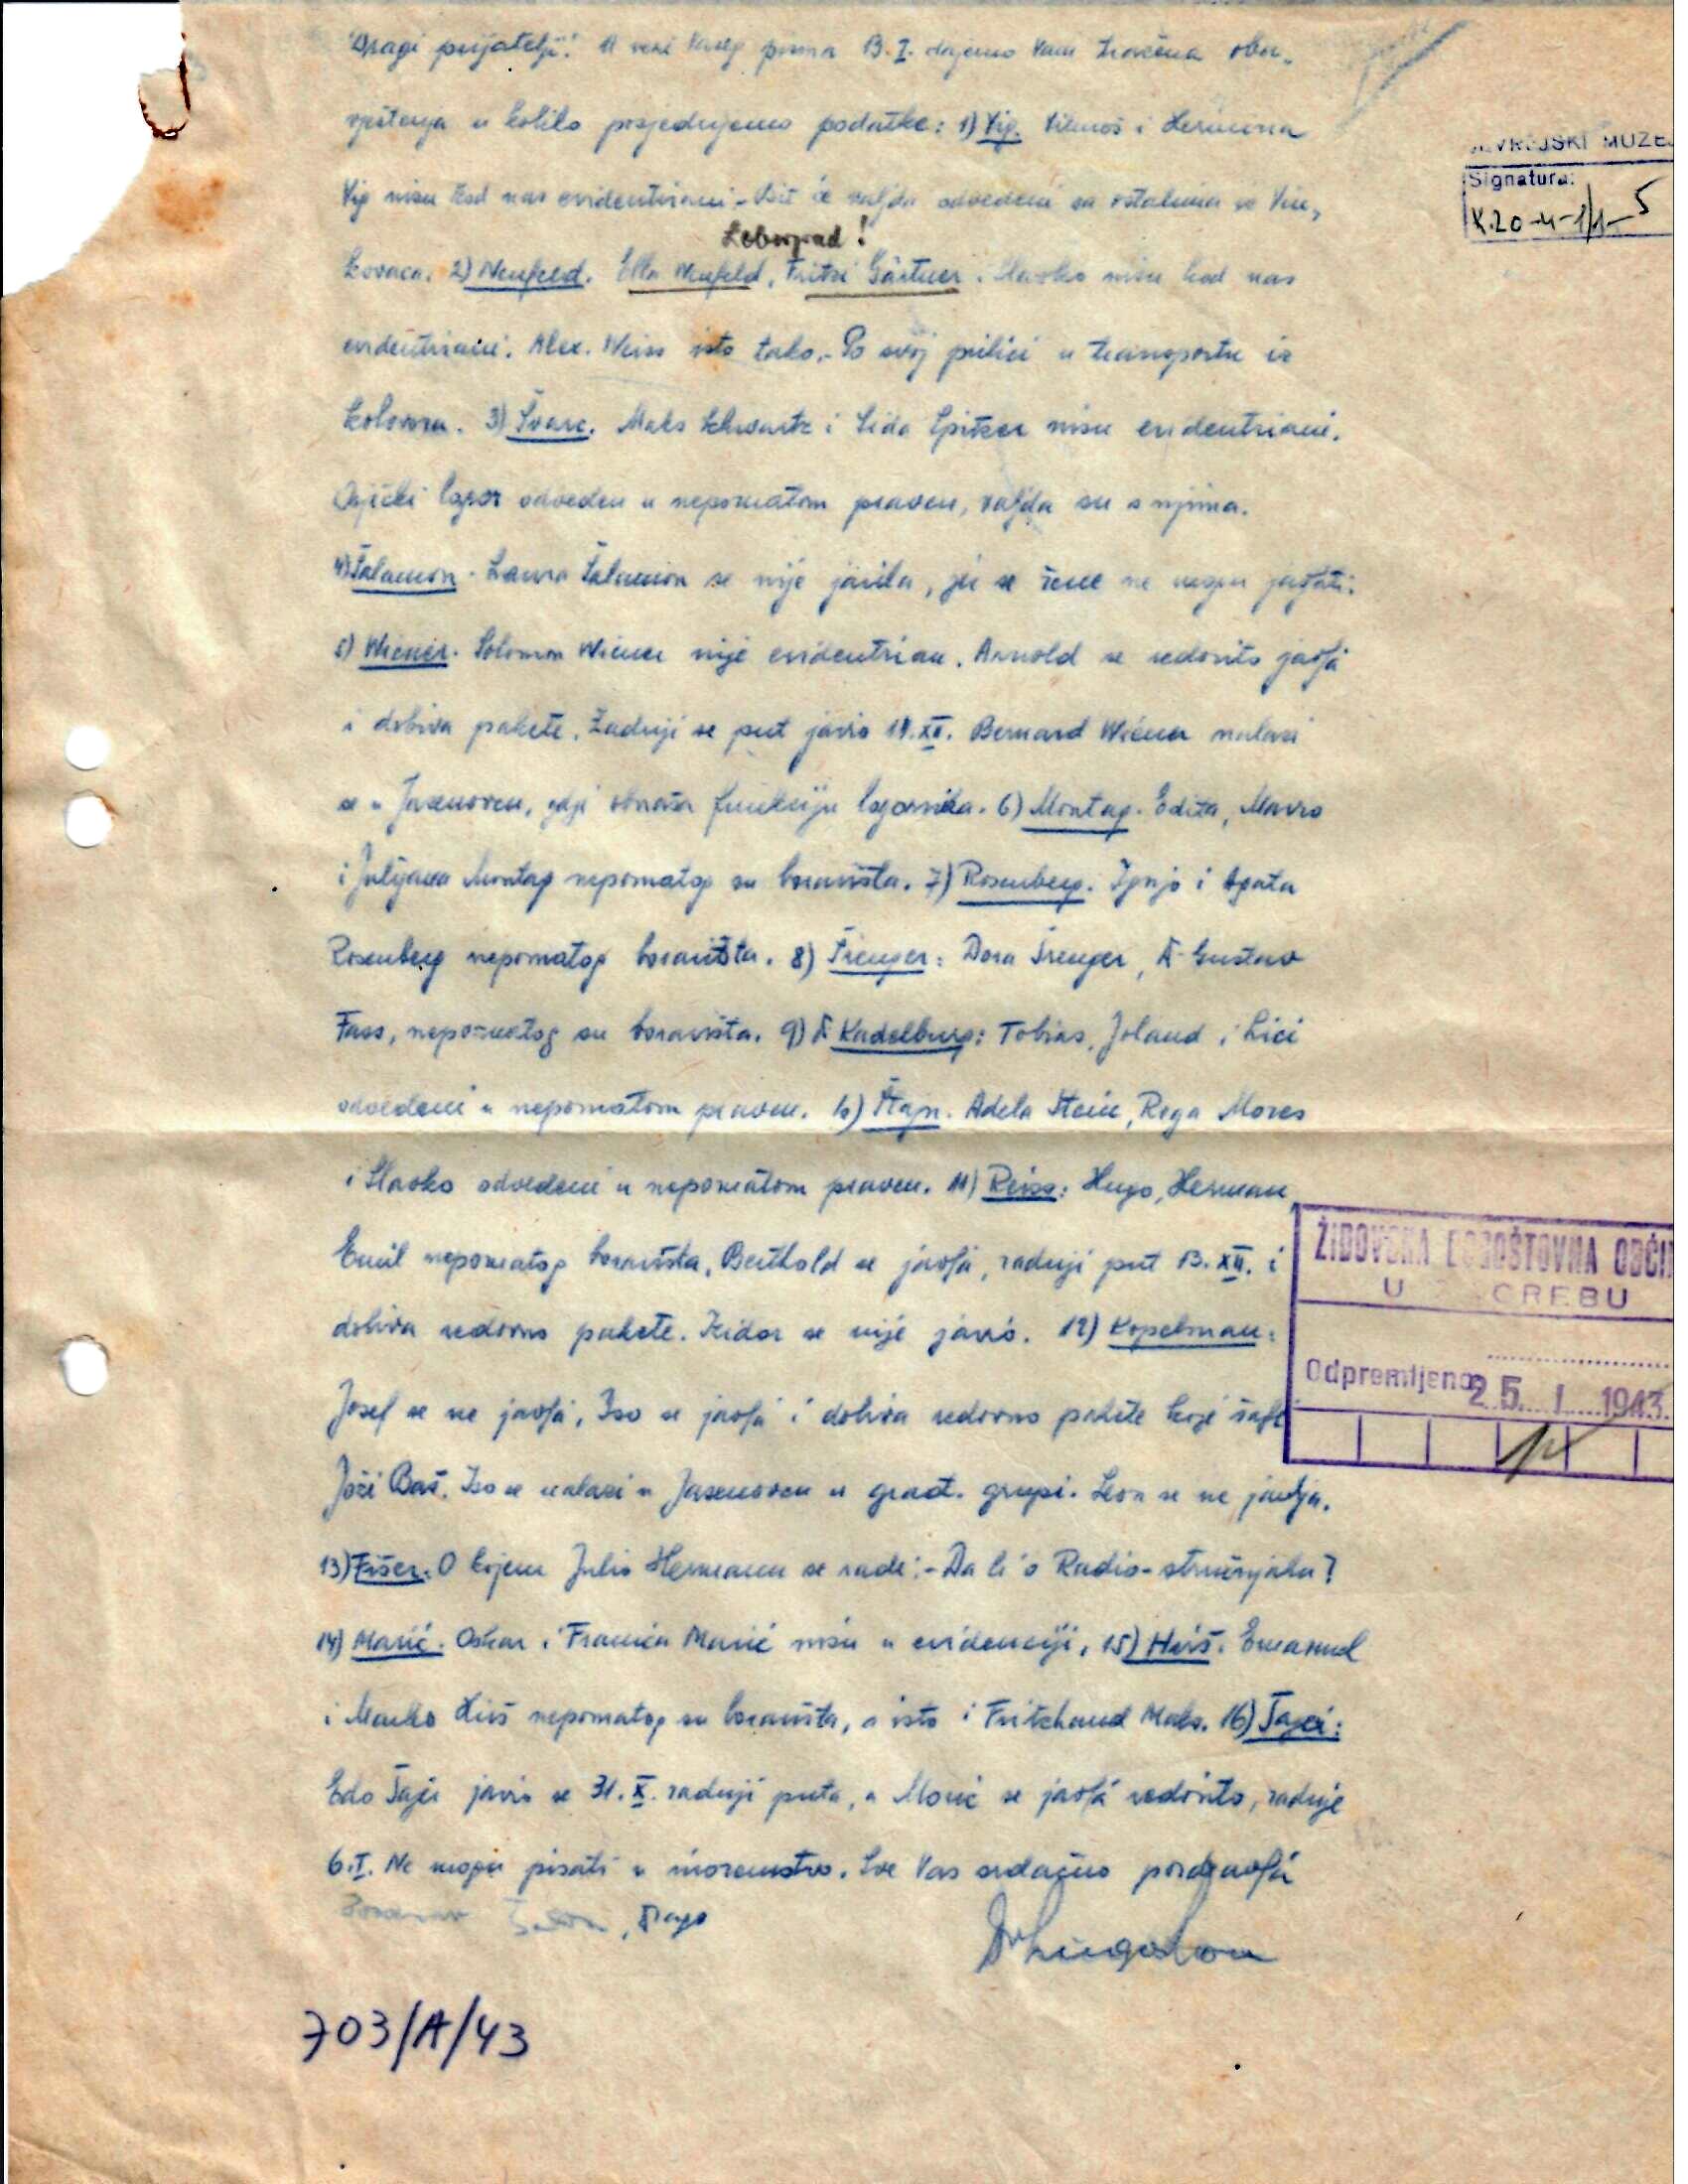 Dragi prijatelji! U vezi Vašeg pisma 13.I. dajemo Vam tražena oba-
vještenja u koliko posjedujemo podatke: 1) Vig. Vilmoš i Hermina
Vig nisu kod nas evidentirani. - Bit će valjda odvedeni sa ostalima iz Vin-
Loborgrad!
kovaca. 2) Neufeld. Ella Neufeld, Fritzi Gärtner. Slavko nisu kod nas
evidentirani. Alex. Weiss isto tako. - Po svoj prilici u transportu iz
kolovoza. 3) Švarc. Maks Schwartz i Lida Spitzer nisu evidentirani.
Osječki logor odveden u nepoznatom pravcu, valjda su s njima.
4) Šalamon. Laura Šalamon se nije javila, jer se žene ne mogu javljati.
5) Wiener. Solomon Wiener nije evidentiran. Arnold se redovito javlja
i dobiva pakete. Zadnji se put javio 19.XII. Bernard Wiener nalazi
se u Jasenovcu, gdje obnaša funkciju logornika. 6) Montag. Edita, Mavro
i Julijana Montag nepoznatog su boravišta. 7) Rosenberg. Ignjo i Agata
Rosenberg nepoznatog boravišta. 8) Šrenger: Dora Šrenger, Dr. Gustav
Fass, nepoznatog su boravišta. 9) Dr Kadelburg: Tobias, Joland i Lici
odvedeni u nepoznatom pravcu. 10) Štajn. Adela Stein, Rega Mores
i Slavko odvedeni u nepoznatom pravcu. 11) Reiss: Hugo, Herman,
Emil nepoznatog boravišta, Berthold se javlja, zadnji put 13.XII. i
dobiva redovno pakete. Izidor se nije javio. 12) Kopelman:
Josef se ne javlja, Iso se javlja i dobiva redovno pakete koje šalje
Joži Baš. Iso se nalazi u Jasenovcu u građ. grupi. Leon se ne javlja.
13) Fišer. O kojem Julio Hermannu se radi. - Da li o Radio-stručnjaku?
14) Marić. Oskar i Franica Marić nisu u evidenciji. 15) Hirš. Emanuel
i Marko Hirš nepoznatog su boravišta, a isto i Fritzhand Maks. 16) Tajči:
Edo Tajči javio se 31.X. zadnji puta, a Moric se javlja redovito, zadnje
6.I. Ne mogu pisati u inozemstvo. Sve Vas srdačno pozdravlja
Pozdrav , Drago
703/A/43
JEVREJSKI MUZEJ
Signatura:
K.20-4-1/1-5
ŽIDOVSKA BOGOŠTOVNA OPĆIN
U ZAGREBU
Odpremljeno 25. I. 1943.